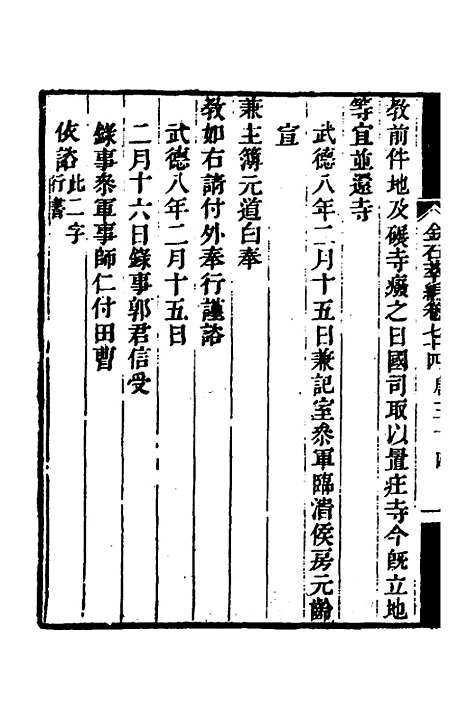 金石萃編卷七十四 唐三十四
教前件地及碾寺癈之日國司取以置庄寺今旣立地
等宜並還寺
武德八年二月十五日兼記室叅軍臨淸侯房元齡
宣
兼主簿元道白奉
敎如右請付外奉行謹諮
武德八年二月十五日
二月十六日錄事郭君信受
錄事叅軍事師仁付田曹
依諮此二字行書